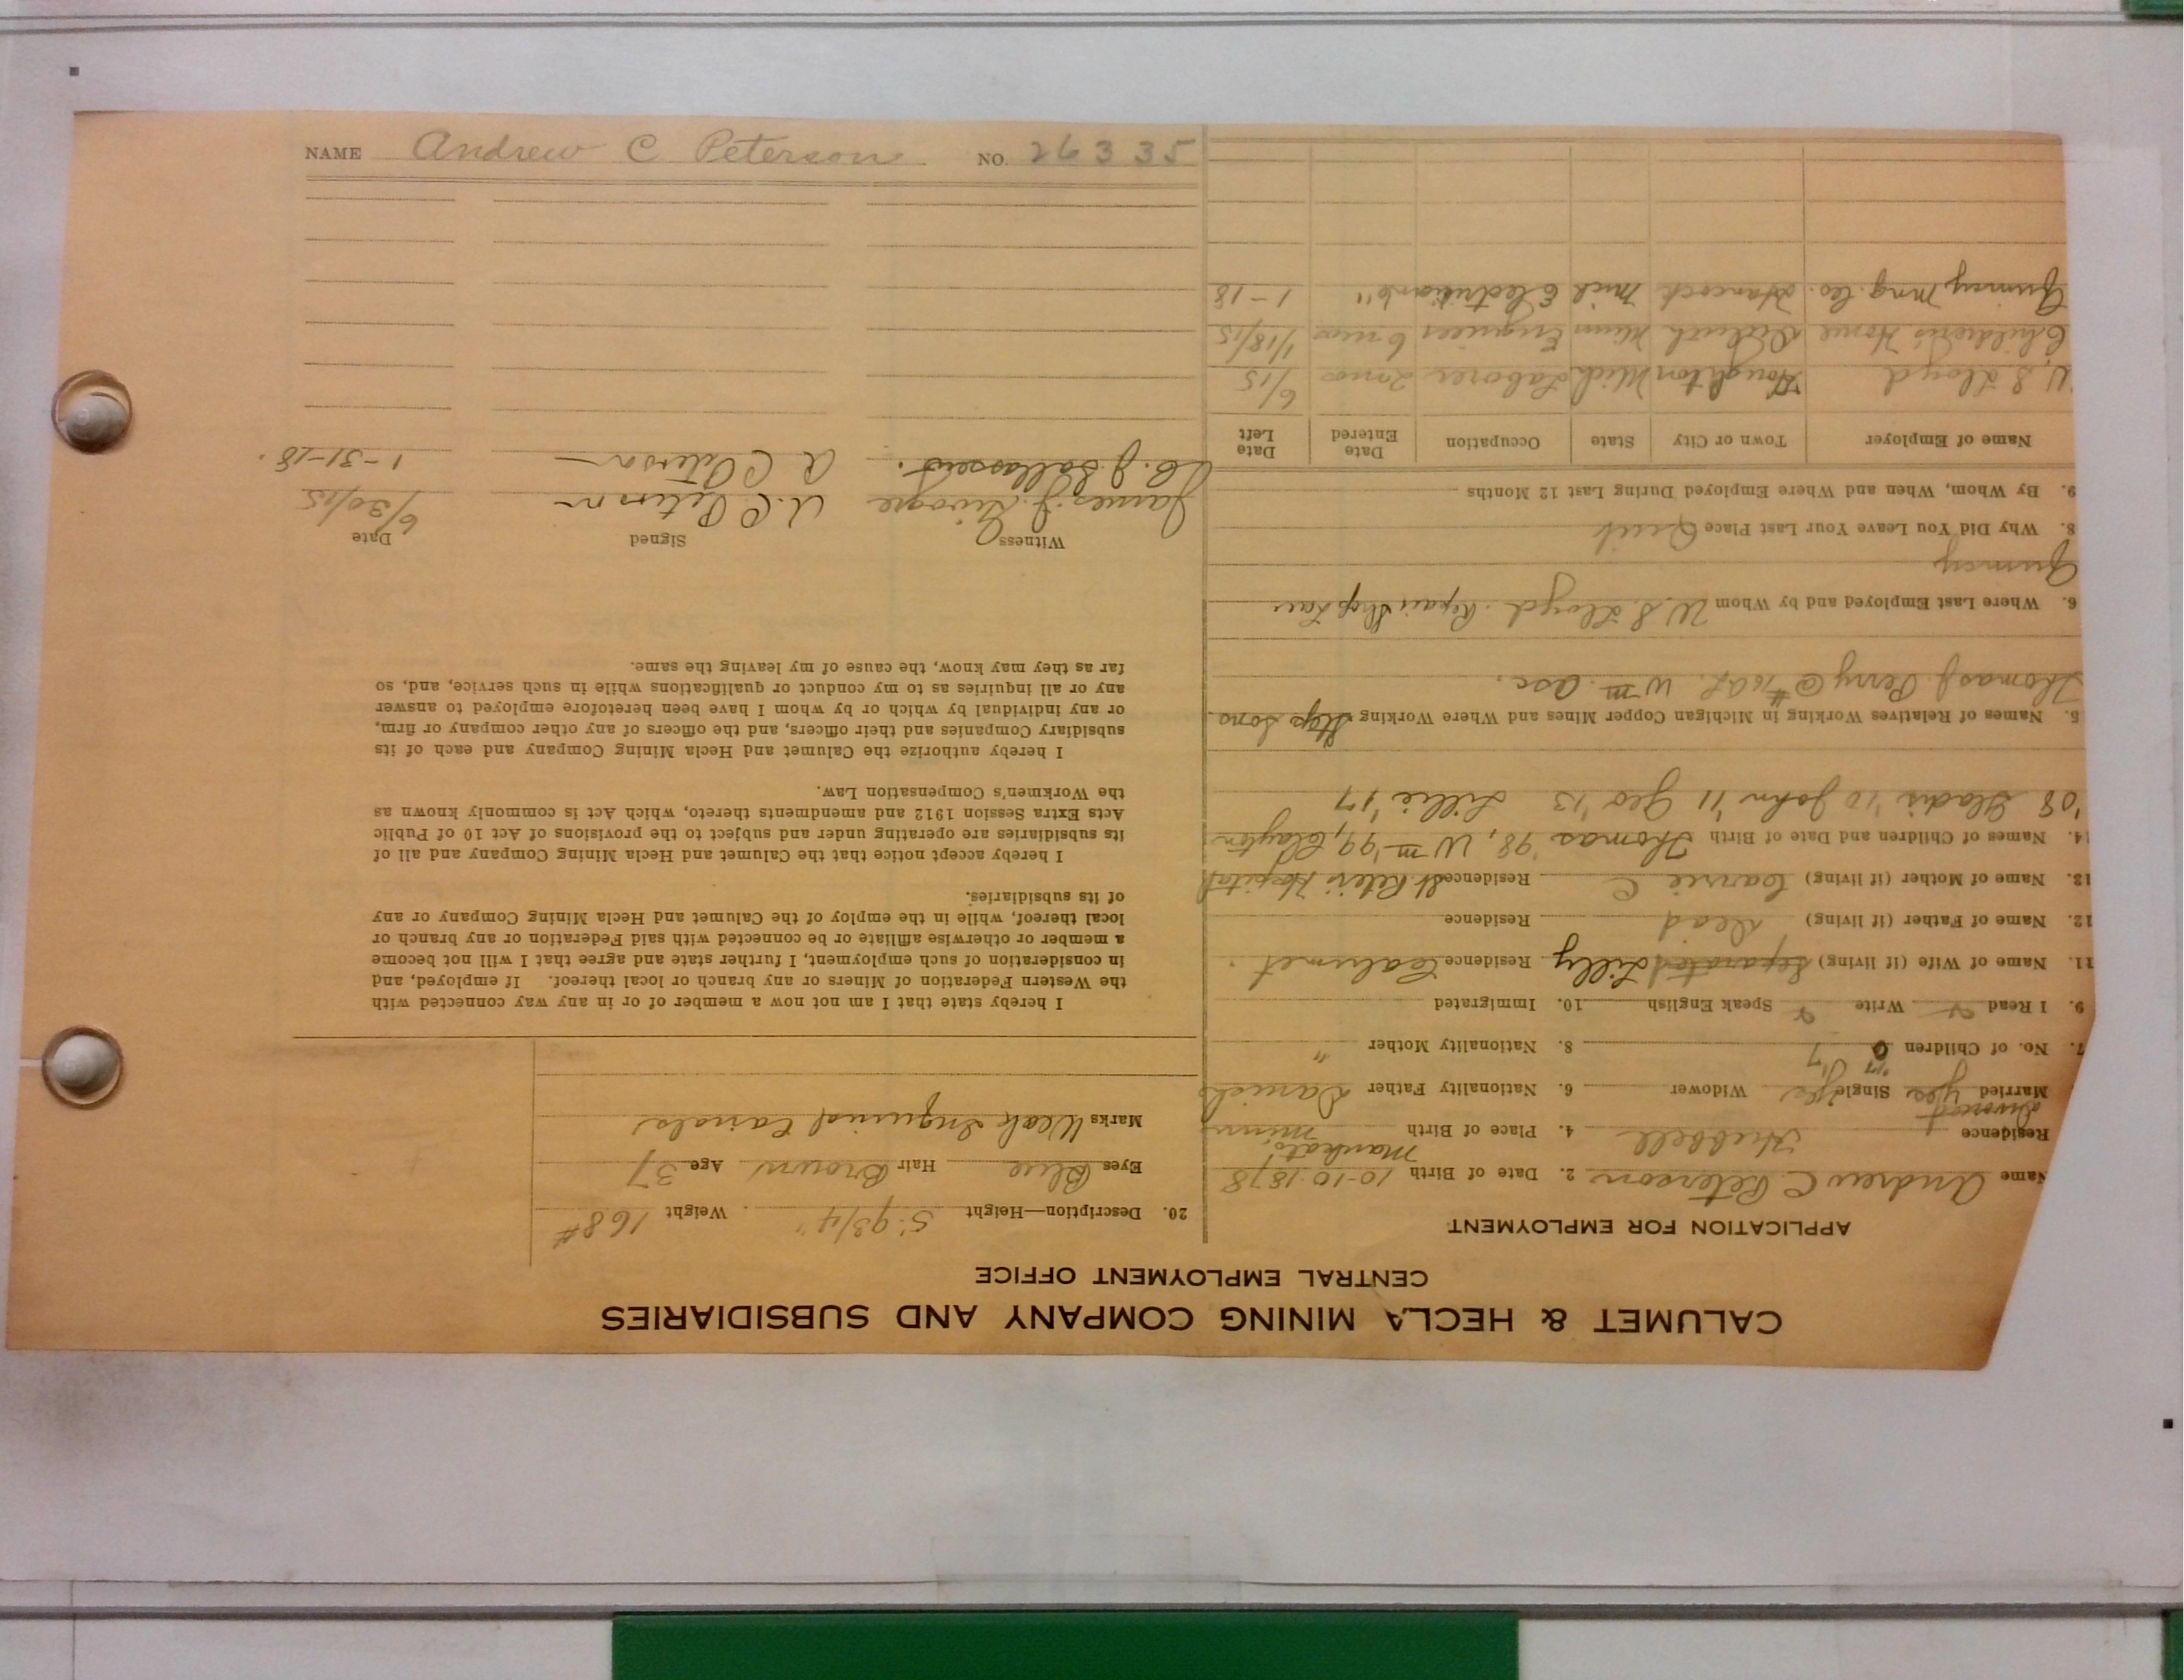 NAME Andrew C Peterson NO. 26335
CALUMET & HECLA MINING COMPANY AND SUBSIDIARIES
CENTRAL EMPLOYMENT OFFICE
APPLICATION FOR EMPLOYMENT
Name Andrew C. Peterson 2. Date of Birth 10-10-1878
Residence Hubbell 4. Place of Birth Mankato Minn
Divorced
Married Yes Single Yes Widower 6. Nationality Father Danish
'17 '17
7. No. of Children 6 7 8. Nationality Mother "
9. I Read Write Speak English 10. Immigrated
11. Name of Wife (if living) Separated Lilly Residence Calumet.
12. Name of Father (if living) Dead Residence
13. Name of Mother (if living) Carrie C Residence St. Peters Hospital
14. Names of Children and Date of Birth Thomas '98, Wm '99, Clayton
'08 Gladis '10 John '11 Geo '13 Lillie '17
5. Names of Relatives Working in Michigan Copper Mines and Where Working Step Sons
Thomas J. Perry @ #16 C.L. Wm Osc.
6. Where Last Employed and by Whom W S Lloyd Repair Shop Laur
Quincy
8. Why Did You Leave Your Last Place Quit
9. By Whom, When and Where Employed During Last 12 Months
Name of Employer Town or City State Occupation Date Entered Date Left
W. S Lloyd Houghton Mich Laborer 2 mos 6/15
Children's Home Duluth Minn Engineer 6 mos 1/18/15
Quincy Mng. Co. Hancock Mich Electrician 6 " 1-18
20. Description—Height 5' 9 3/4" Weight 168#
Eyes Blue Hair Brown Age 37
Marks Weak Inguinal Canals
I hereby state that I am not now a member of or in any way connected with
the Western Federation of Miners or any branch or local thereof. If employed, and
in consideration of such employment, I further state and agree that I will not become
a member or otherwise affiliate or be connected with said Federation or any branch or
local thereof, while in the employ of the Calumet and Hecla Mining Company or any
of its subsidiaries.
I hereby accept notice that the Calumet and Hecla Mining Company and all of
its subsidiaries are operating under and subject to the provisions of Act 10 of Public
Acts Extra Session 1912 and amendments thereto, which Act is commonly known as
the Workmen's Compensation Law.
I hereby authorize the Calumet and Hecla Mining Company and each of its
subsidiary Companies and their officers, and the officers of any other company or firm,
or any individual by which or by whom I have been heretofore employed to answer
any or all inquiries as to my conduct or qualifications while in such service, and, so
far as they may know, the cause of my leaving the same.
Witness Signed Date
James J. A. C. Peterson 6/30/15
A C Peterson 1-31-18.